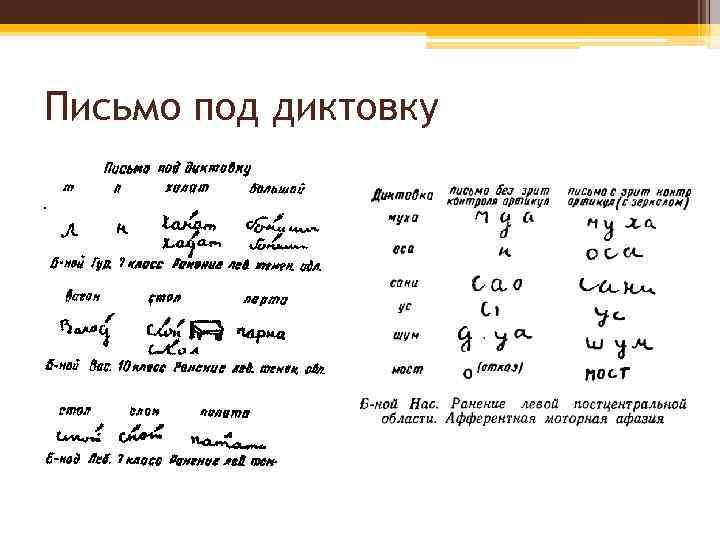 Письмо под диктовку
Письмо под диктовку
т п халат большой
л н Ханат
Хадат
Б-ной Гур. 7 класс Ранение лев. темен. обл.
вагон стол парта
Валод Слой парна
Слол
Б-ной Вас. 10 класс Ранение лев. темен. обл.
стол слон палата
слой слот патата
Б-ной Леб. 7 класс Ранение лев. тем-
Диктовка письмо без зрит контроля артикул письмо с зрит контр артикул (с зеркалом)
муха м д а муха
оса н оса
сани сао сани
ус с ус
шум д. уа шум
мост о (отказ) мост
Б-ной Нас. Ранение левой постцентральной
области. Афферентная моторная афазия